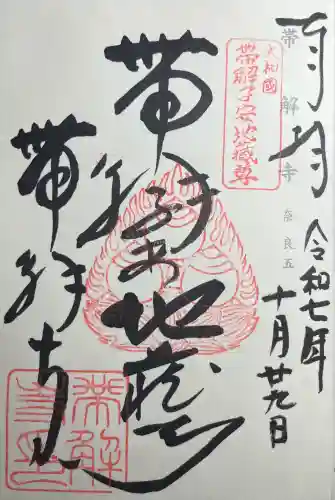 奉拝
帯解寺 奈良五
令和七年
十月廿九日
大和國
帯解子安地蔵尊
帯解子安地蔵
帯解寺
帯解寺印